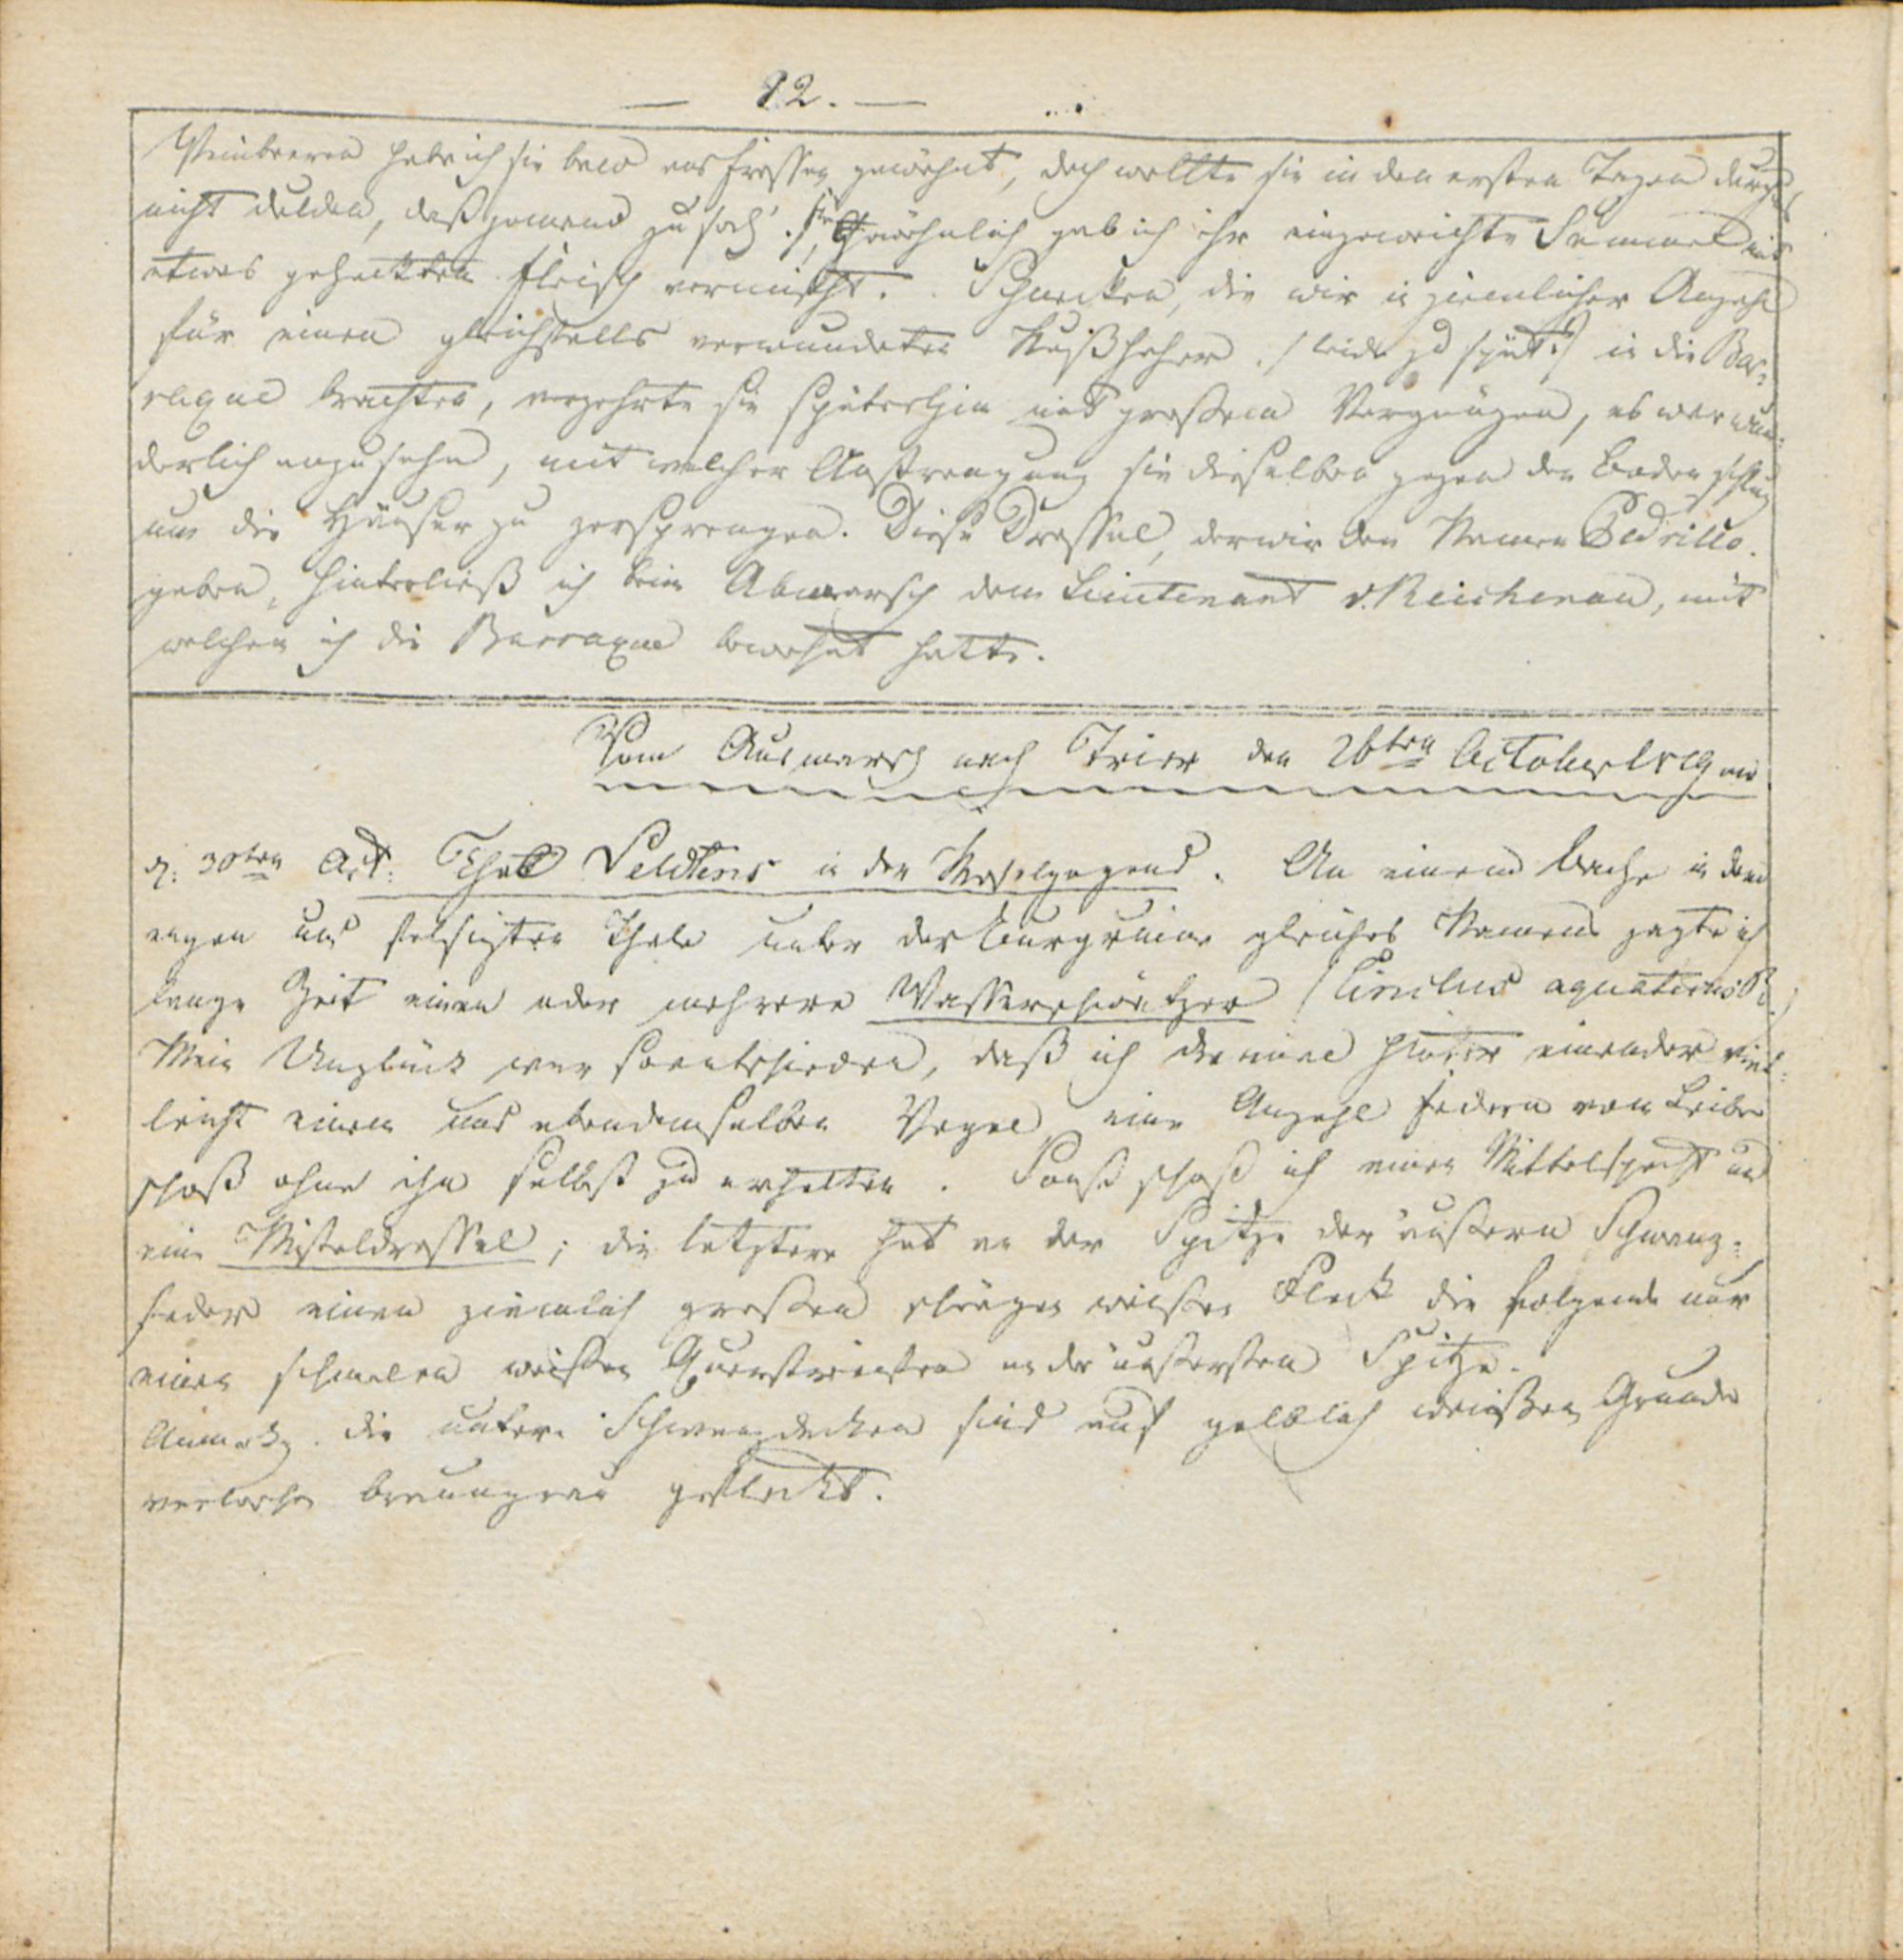 — 82. —
Weinbeeren habe ich sie bald ans Fressen gewöhnt, doch wollte sie in den ersten Tagen durchaus
nicht dulden, daß jemand zu sah. Gewöhnlich gab ich ihr eingeweichte Semmel mit
etwas gehacktem Fleisch vermischt. Schnecken, die wir in ziemlicher Anzahl
für einen gleichfalls verwundeten Nußheher /: leider zu spät :/ in die Bar-
raque brachten, verzehrte sie späterhin mit großem Vergnügen, es war wun-
derlich anzusehn, mit welcher Anstrengung sie dieselben gegen den Boden schlug
um die Häuser zu zersprengen. Diese Drossel, der wir den Namen Pedrillo
gaben, hinterließ ich beim Abmarsch dem Lieutenant v. Reichenau, mit
welchem ich die Barraque bewohnt hatte.
Vom Ausmarsch nach Trier den 26ten October 1819 an.
d. 30ten Oct: Thal Veldens in der Moselgegend. An einem Bache in dem
engen und felsigten Thale unter der Burgruine gleiches Namens jagte ich
lange Zeit einen oder mehrere Wasserschwätzer (Cinclus aquaticus B.)
Mein Unglück war so entschieden, daß ich dreimal hinter einander viel-
leicht einem und ebendemselben Vogel eine Anzahl Federn vom Leibe
schoß ohne ihn selbst zu erhalten. Sonst schoß ich einen Mittelspecht und
eine Misteldrossel; die letztere hat an der Spitze der äußern Schwanz-
feder einen ziemlich großen schrägen weißen Fleck die folgende nur
einen schmalen weißen Querstreifen an der äußersten Spitze.
Anmerkg. die untern Schwanzdecken sind auf gelblich weißem Grunde
verloschen braungrau gefleckt.